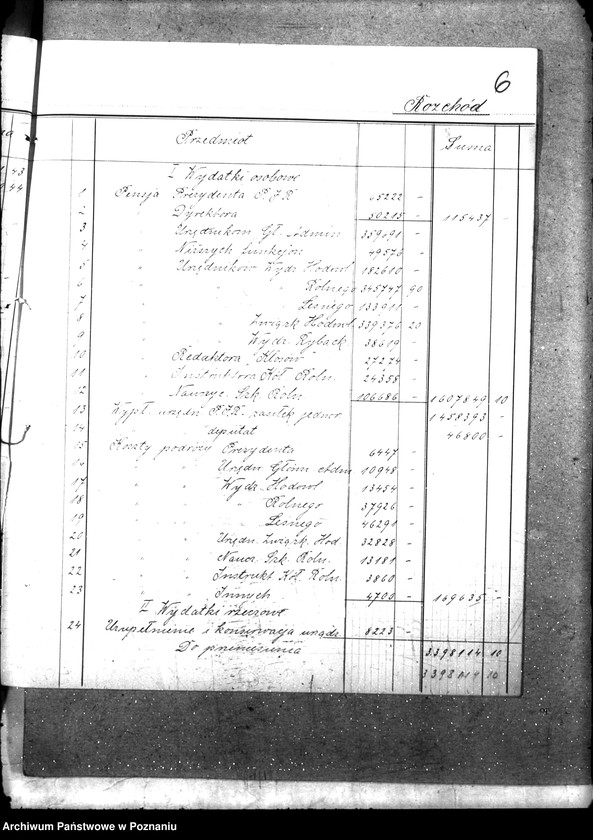 6
Rozchód
Przedmiot Suma
43
44
I Wydatki osobowe
1 Pensja Prezydenta P.I.R. 65222 -
2 " Dyrektora 50215 - 115437 -
3 " Urzędnikom Gł. Admin 359191 -
4 " Niższych funkcjon 49576 -
5 " Urzędników Wydz Hodowl 182610 -
6 " " " Rolnego 345747 90
7 " " " Leśnego 133911 -
8 " " Związk Hodowl 339376 20
9 " " Wydz Ryback 38619 -
10 " Redaktora "Kłosów" 27274 -
11 " Instruktora Kół Roln. 24358 -
12 " Nauczyc. Szk Roln. 106686 - 1607849 10
13 Wypł urzędn P.I.R. zasiłk jednor 1458393 -
14 deputat 46800 -
15 Koszty podróży Prezydenta 6447 -
16 " " Urzędn Główn Adm 10948 -
17 " " Wydz Hodowl 13454 -
18 " " " Rolnego 37926 -
19 " " " Leśnego 46291 -
20 " " Urzędn Związk. Hod 32828 -
21 " " Naucz Szk Roln. 13181 -
22 " " Instrukt Kół Roln 3860 -
23 " " Innych 4700 - 169635 -
II Wydatki rzeczowe
24 Uzupełnienie i konserwacja urządz 8223 -
Do przeniesienia 3398114 10
10
Archiwum Państwowe w Poznaniu